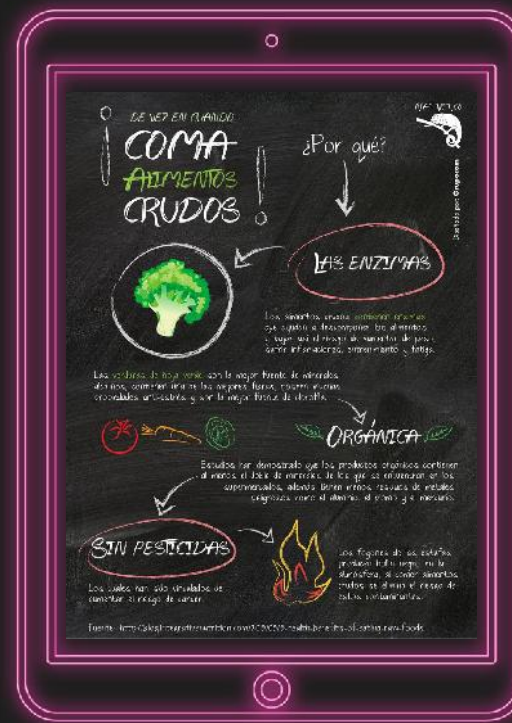 DE VEZ EN CUANDO
COMA
ALIMENTOS
CRUDOS
¿Por qué?
LAS ENZIMAS
Los alimentos crudos contienen enzimas
que ayudan a descomponer los alimentos
y bajar así el riesgo de aumentar de peso,
sufrir inflamaciones, estreñimiento y fatiga.
Las verduras de hoja verde son la mejor fuente de minerales
alcalinos, contienen una de las mejores fibras, poseen muchas
propiedades anti-estrés y son la mejor fuente de clorofila.
ORGÁNICA
Estudios han demostrado que los productos orgánicos contienen
al menos el doble de minerales de los que se encuentran en los
supermercados, además tienen menos residuos de metales
peligrosos como el aluminio, el plomo y el mercurio.
SIN PESTICIDAS
Los cuales han sido vinculados de
aumentar el riesgo de cáncer.
Los fogones de las estufas
producen hollín negro en la
atmósfera, al comer alimentos
crudos se elimina el riesgo de
estos contaminantes.
Fuente: